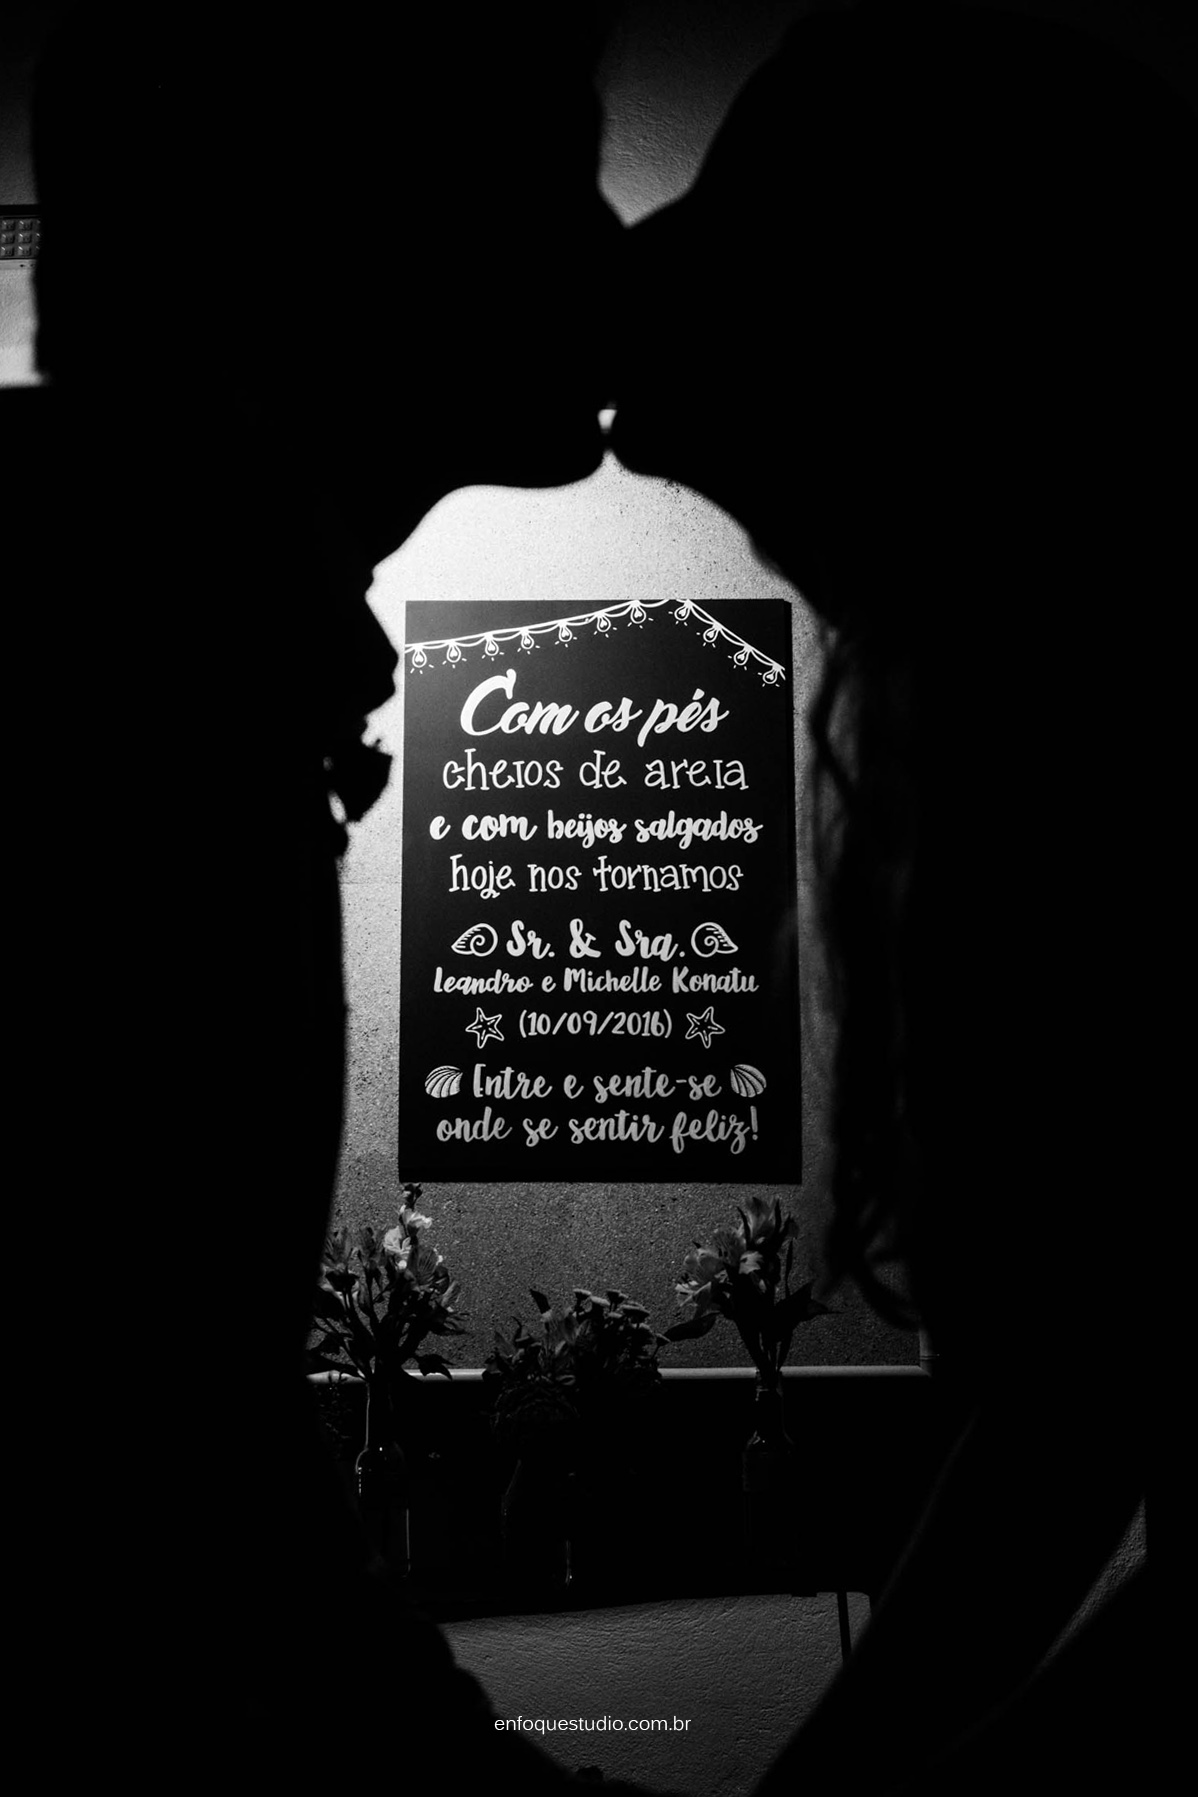 Com os pés
cheios de areia
e com beijos salgados
hoje nos tornamos
Sr. & Sra.
Leandro e Michelle Konatu
(10/09/2016)
Entre e sente-se
onde se sentir feliz!
enfoquestudio.com.br